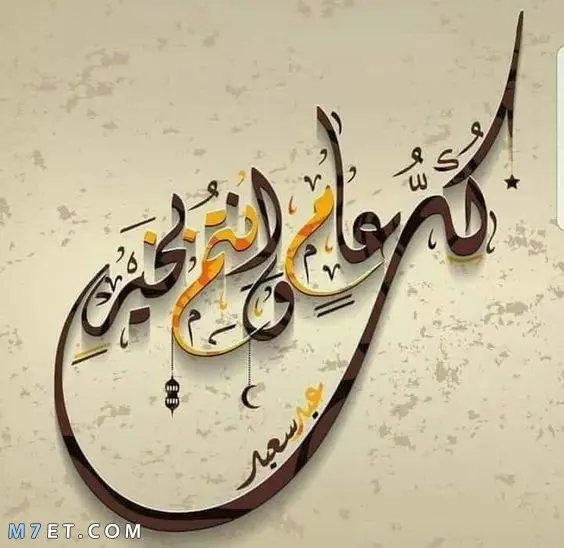 كُلُّ عَامٍ وَانتُمْ بِخَيْرٍ
عيد سعيد
M7ET.COM